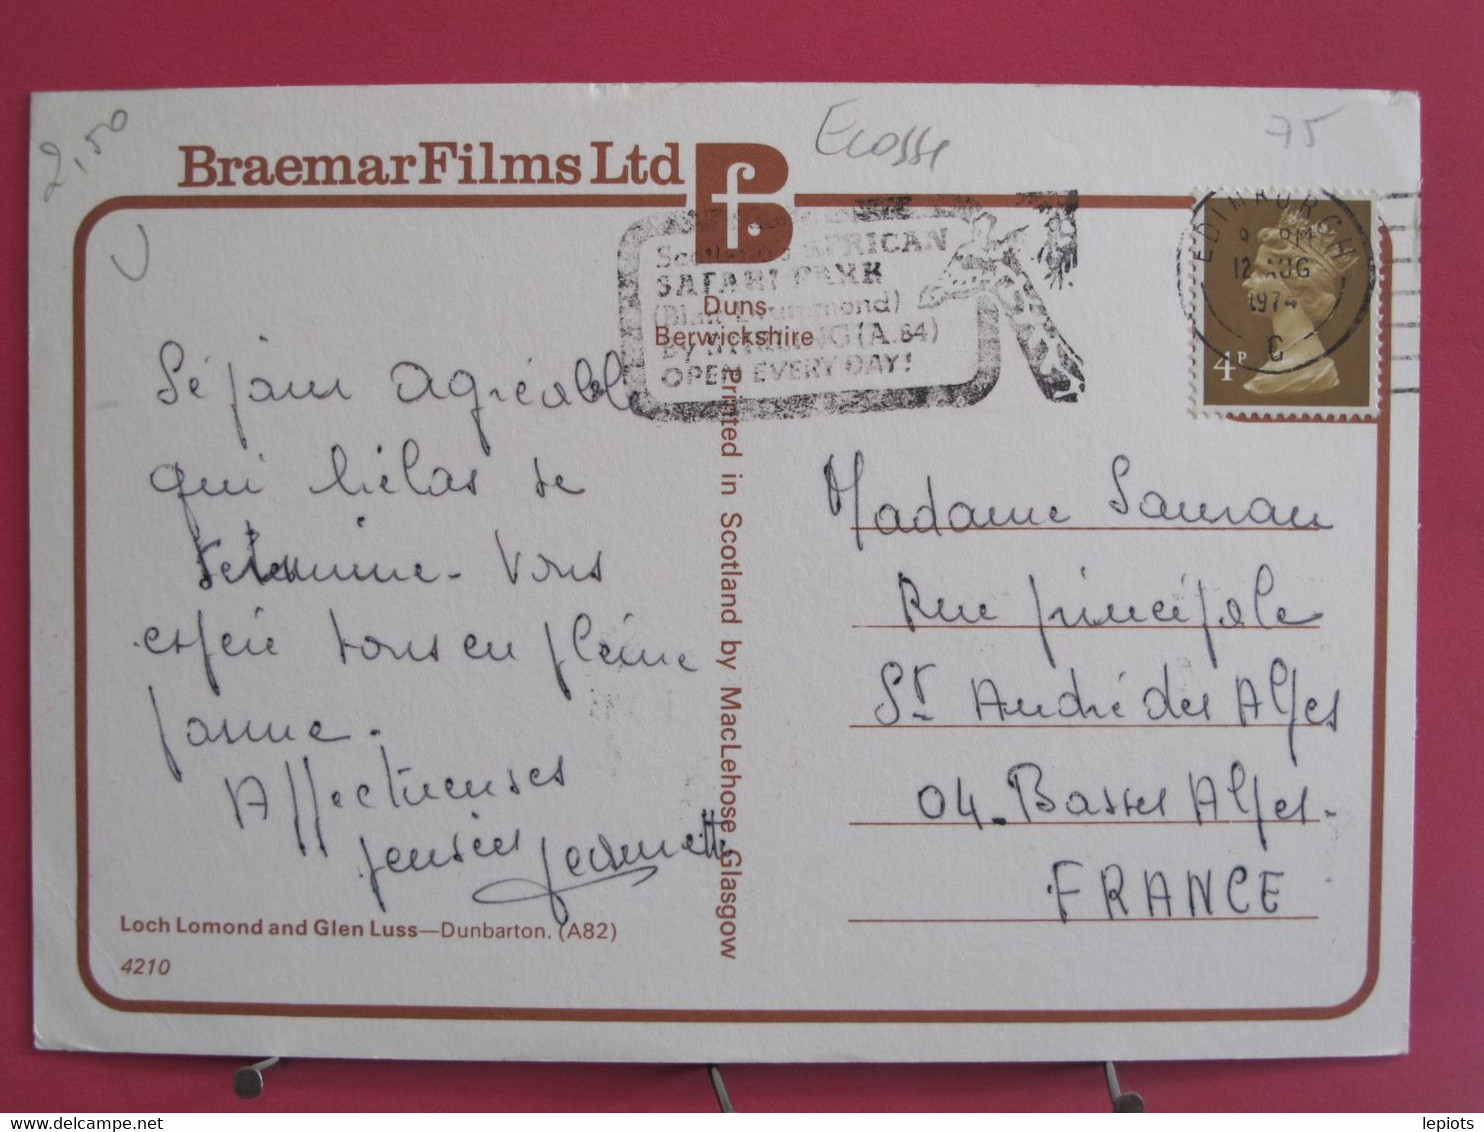 2,50
Ecosse
75
Braemar Films Ltd
Bf.
Duns
Berwickshire
Scotland's AFRICAN
SAFARI PARK
(Blair Drummond)
By STIRLING (A.84)
OPEN EVERY DAY!
EDINBURGH
PM
12 AUG
1974
C
4P
Séjour agréable
qui hélas se
termine - Vous
espère tous en pleine
forme.
Affectueuses
pensées
Printed in Scotland by MacLehose Glasgow
Madame
Rue principale
St André des Alpes
04 - Basses Alpes -
FRANCE
Loch Lomond and Glen Luss—Dunbarton. (A82)
4210
lepiots